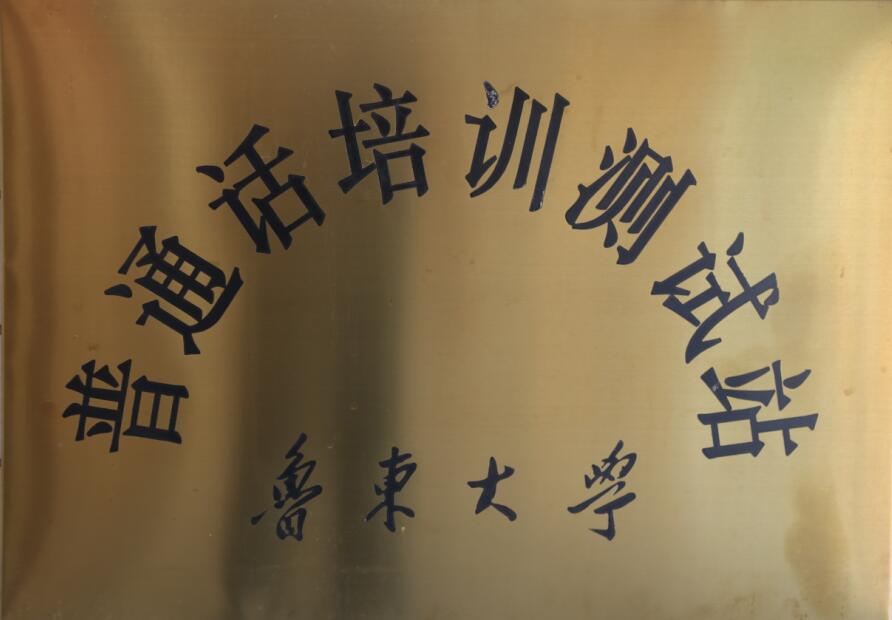 普通话培训测试站
魯東大學